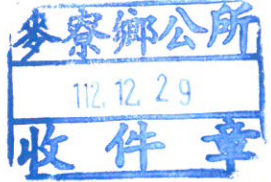 麥寮鄉公所
112.12.29
收件章